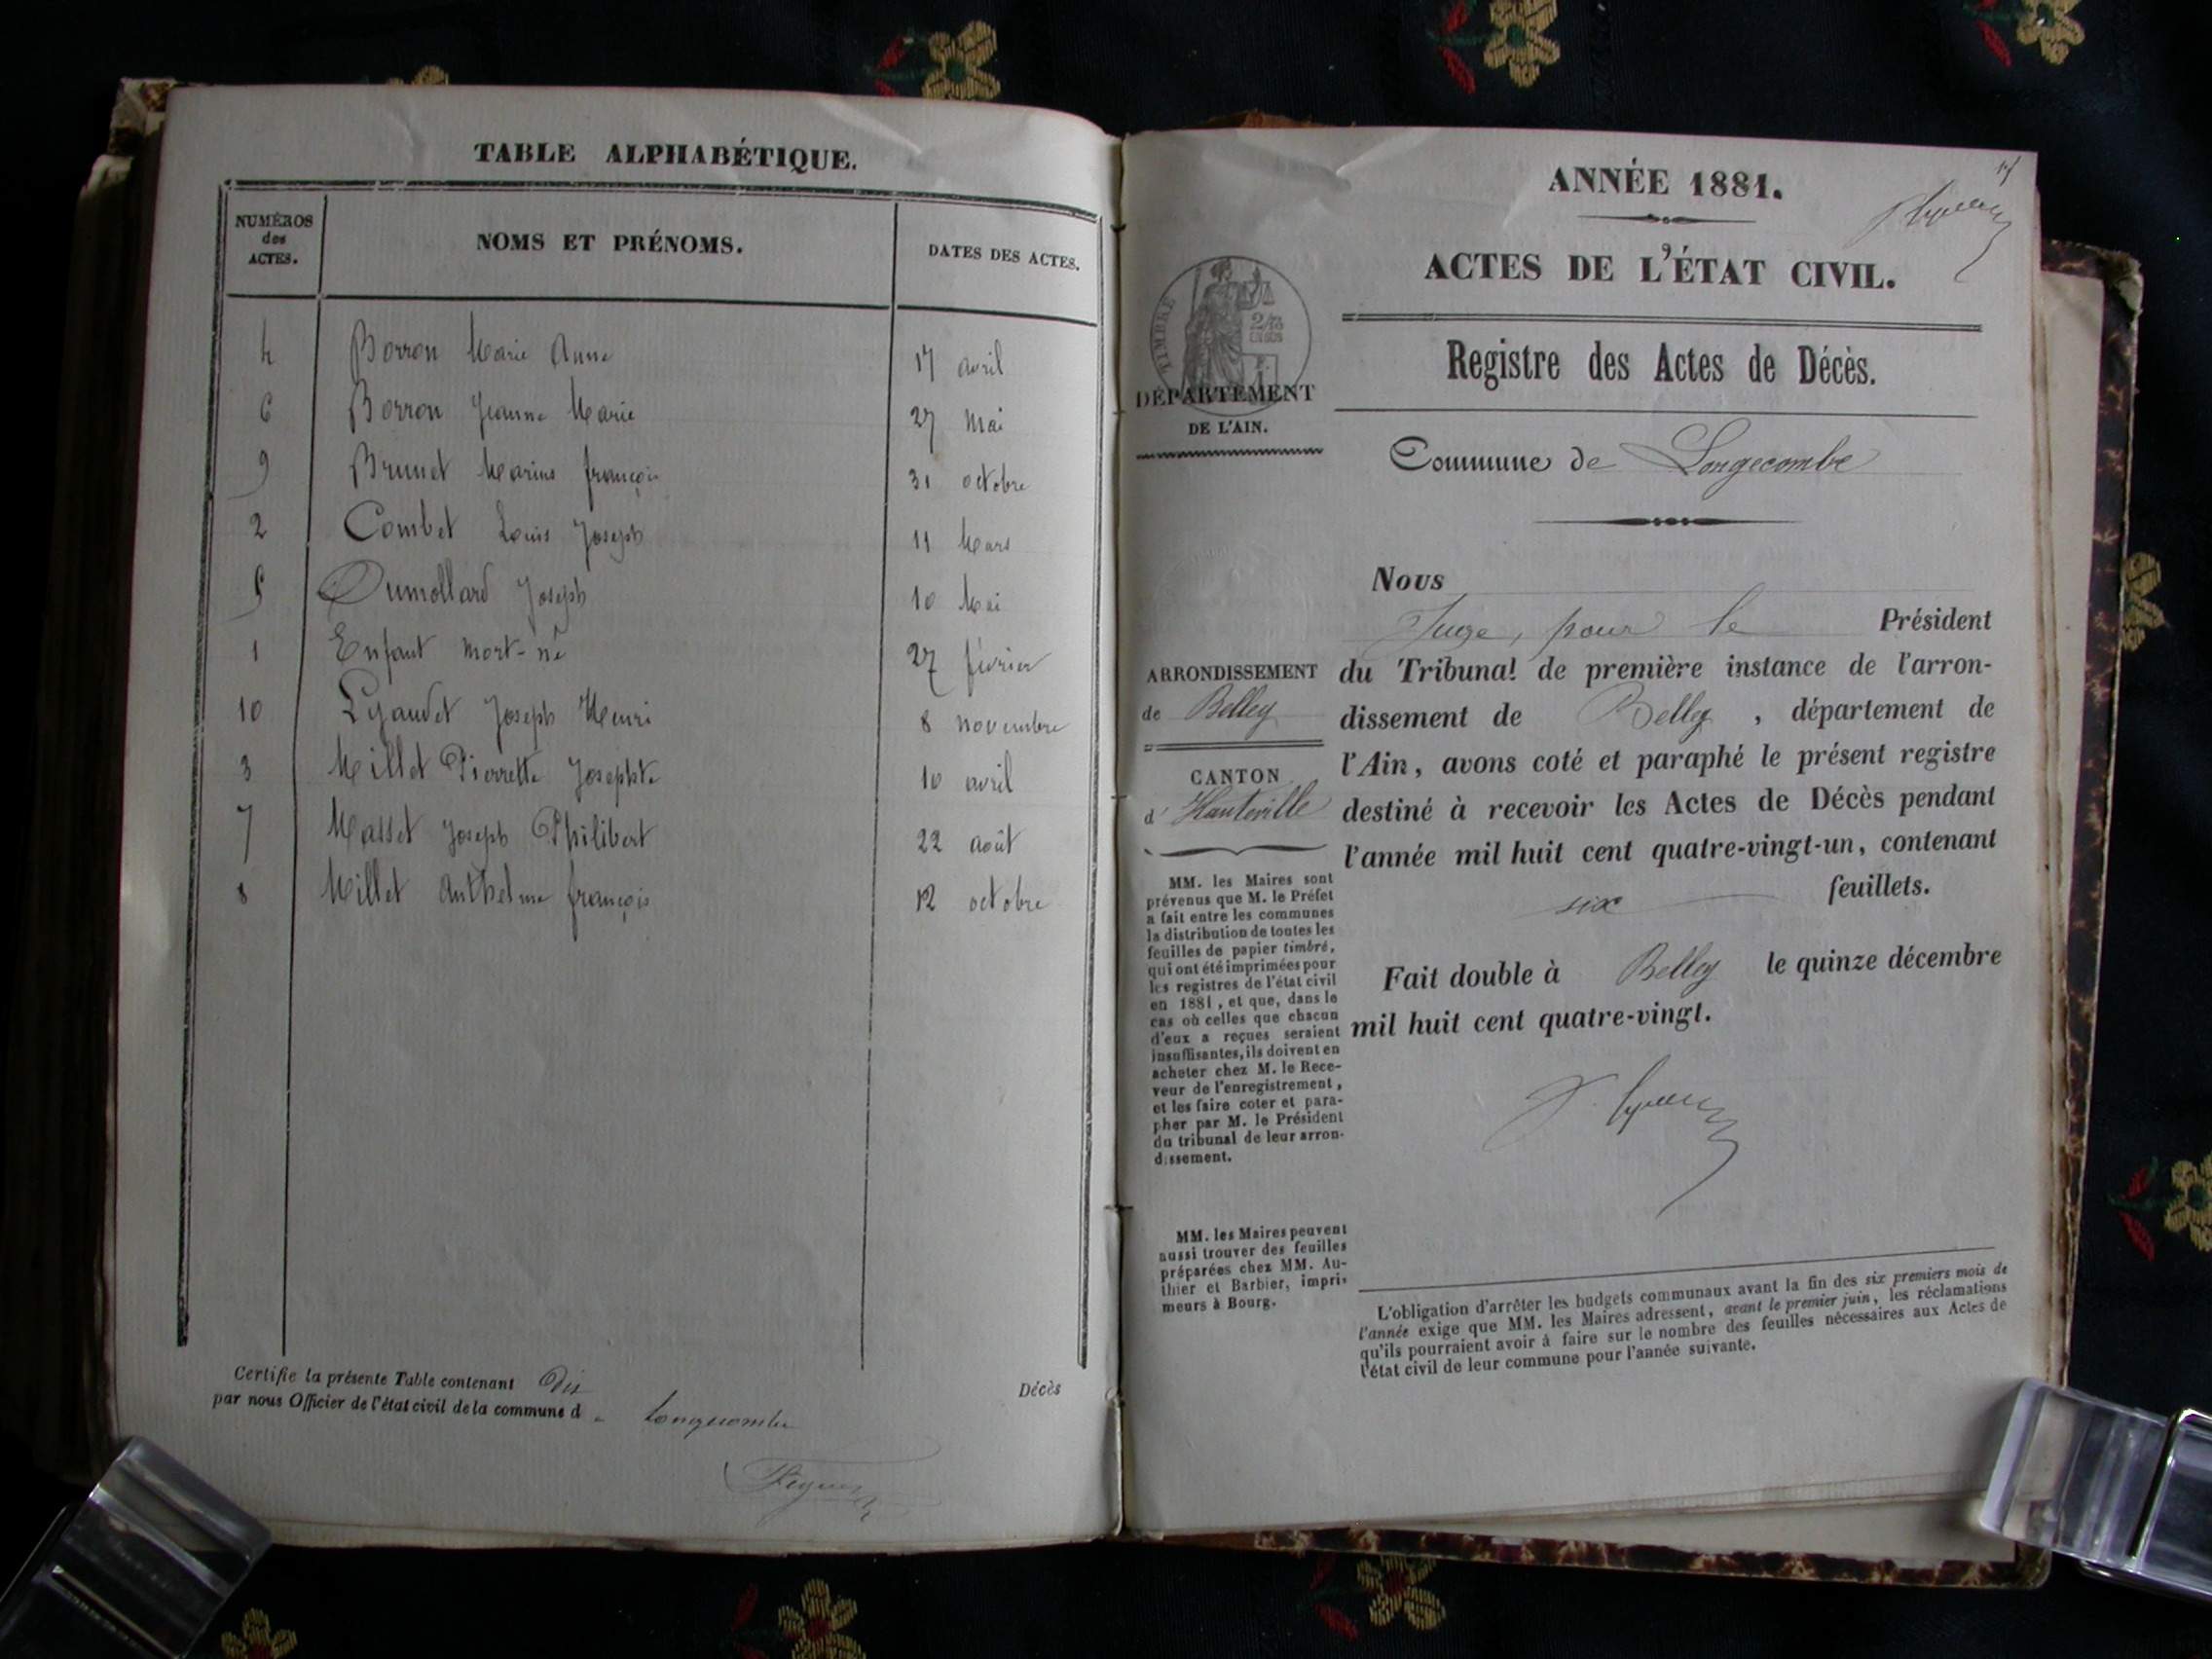 TABLE ALPHABÉTIQUE.
NUMÉROS des ACTES. NOMS ET PRÉNOMS. DATES DES ACTES.
4 Borron Marie Anne 17 avril
6 Borron Jeanne Marie 27 Mai
9 Brunet Marius françois 31 octobre
2 Combet Louis Joseph 11 Mars
5 Dumollard Joseph 10 Mai
1 Enfant mort-né 27 février
10 Lyaudet Joseph Henri 8 novembre
3 Millet Pierrette Josephte 10 avril
7 Masset Joseph Philibert 22 août
8 Millet Anthelme françois 12 octobre
Certifie la présente Table contenant Dix Décès
par nous Officier de l'état civil de la commune de Longecombe
ANNÉE 1881.
ACTES DE L'ÉTAT CIVIL.
TIMBRE
DÉPARTEMENT
DE L'AIN.
Registre des Actes de Décès.
Commune de Longecombe
ARRONDISSEMENT
de Belley
CANTON
d' Hauteville
MM. les Maires sont
prévenus que M. le Préfet
a fait entre les communes
la distribution de toutes les
feuilles de papier timbré,
qui ont été imprimées pour
les registres de l'état civil
en 1881, et que, dans le
cas où celles que chacun
d'eux a reçues seraient
insuffisantes, ils doivent en
acheter chez M. le Rece-
veur de l'enregistrement,
et les faire coter et para-
pher par M. le Président
du tribunal de leur arron-
dissement.
MM. les Maires peuvent
aussi trouver des feuilles
préparées chez MM. Au-
thier et Barbier, impri-
meurs à Bourg.
Nous
Juge, pour le Président
du Tribunal de première instance de l'arron-
dissement de Belley, département de
l'Ain, avons coté et paraphé le présent registre
destiné à recevoir les Actes de Décès pendant
l'année mil huit cent quatre-vingt-un, contenant
six feuillets.
Fait double à Belley le quinze décembre
mil huit cent quatre-vingt.
L'obligation d'arrêter les budgets communaux avant la fin des six premiers mois de
l'année exige que MM. les Maires adressent, avant le premier juin, les réclamations
qu'ils pourraient avoir à faire sur le nombre des feuilles nécessaires aux Actes de
l'état civil de leur commune pour l'année suivante.